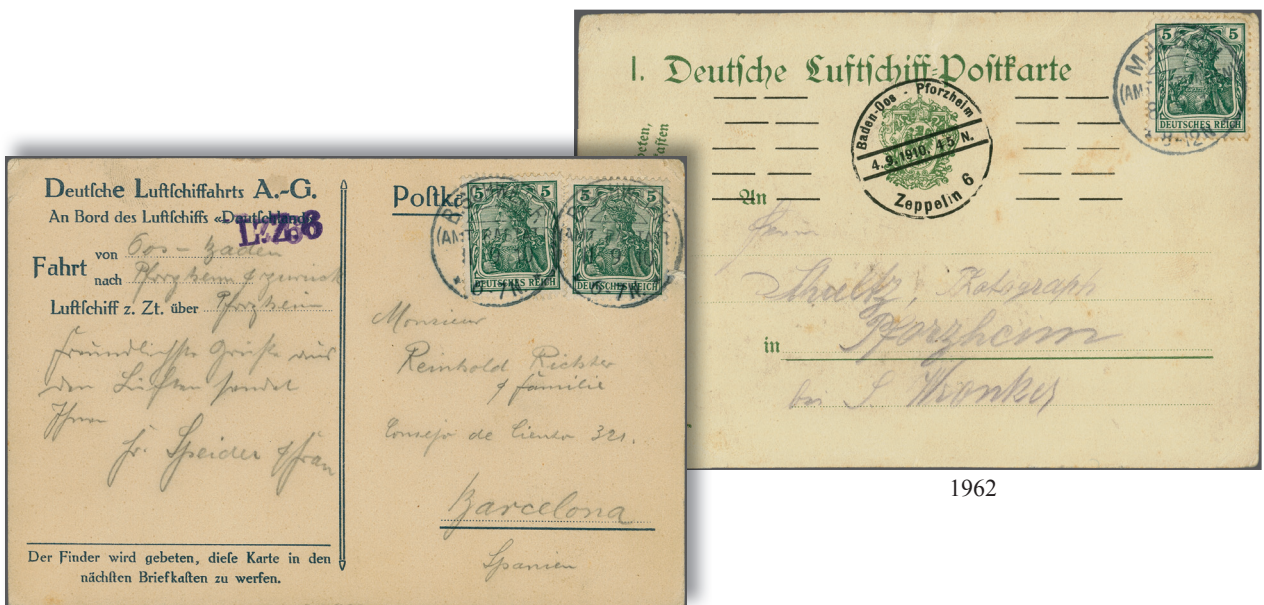 Deutſche Luftſchiffahrts A.-G.
An Bord des Luftſchiffs «Deutſchland»
L.Z. 6
von Oos – Baden
Fahrt
nach Pforzheim & zurück
Luftſchiff z. Zt. über Pforzheim
Freundlichste Grüße aus
den Lüften sendet
Ihnen
Fr. Speidel & Frau
Der Finder wird gebeten, dieſe Karte in den
nächſten Briefkaſten zu werfen.
Postka
5 5 5 5
DEUTSCHES REICH DEUTSCHES REICH
Monsieur
Reinhold Richter
& Familie
Consejo de Ciento 321.
Barcelona
Spanien
I. Deutſche Luftſchiff-Poſtkarte
5 5
DEUTSCHES REICH
Baden-Oos - Pforzheim
4. 9. 1910. 4-5 N.
Zeppelin 6
An
in Pforzheim
1962